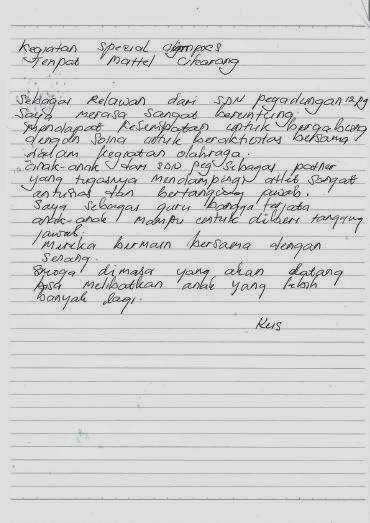 Kegiatan Special Olympics
Tempat Mattel Cikarang
Sebagai Relawan dari SDN pegadungan 12 pg
Saya merasa sangat beruntung
mendapat kesempatan untuk bergabung
dengan Soina untuk beraktivitas bersama
dalam kegiatan olahraga.
anak-anak dari SDN peg sebagai patner
yang tugasnya mendampingi atlet sangat
antusias dan bertanggung jawab.
Saya sebagai guru bangga ternyata
anak-anak mampu untuk diberi tanggung
jawab.
Mereka bermain bersama dengan
senang.
Semoga dimasa yang akan datang
bisa melibatkan anak yang lebih
banyak lagi.
Kus